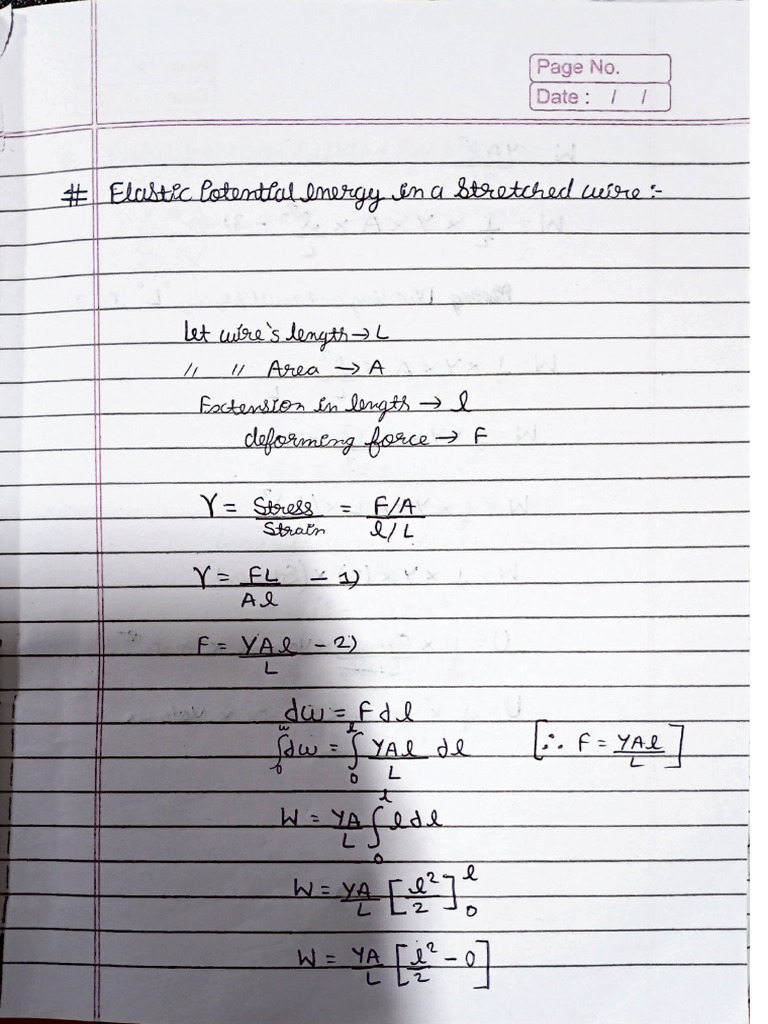 Page No.
Date : / /
# Elastic Potential energy in a Stretched wire :-
Let wire's length → L
〃 〃 Area → A
Extension in length → l
deforming force → F
Y = Stress/Strain = F/A / l/L
Y = FL/Al - 1)
F = YAl/L - 2)
dw = F dl
∫₀ʷ dw = ∫₀ˡ YAl/L dl [∴ F = YAl/L]
W = YA/L ∫₀ˡ l dl
W = YA/L [l²/2]₀ˡ
W = YA/L [l²/2 - 0]